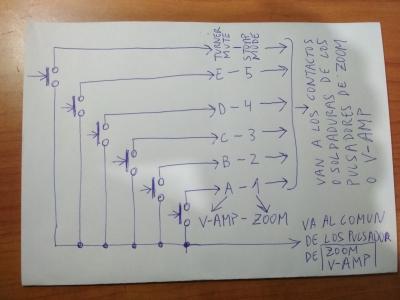 TURNER - STOMP
MUTE - MODE
E - 5
D - 4
C - 3
B - 2
A - 1
V-AMP - ZOOM
VAN A LOS CONTACTOS
O SOLDADURAS DE LOS
PULSADORES DE ZOOM
O V-AMP
VA AL COMUN
DE LOS PULSADOR
DE ZOOM
V-AMP